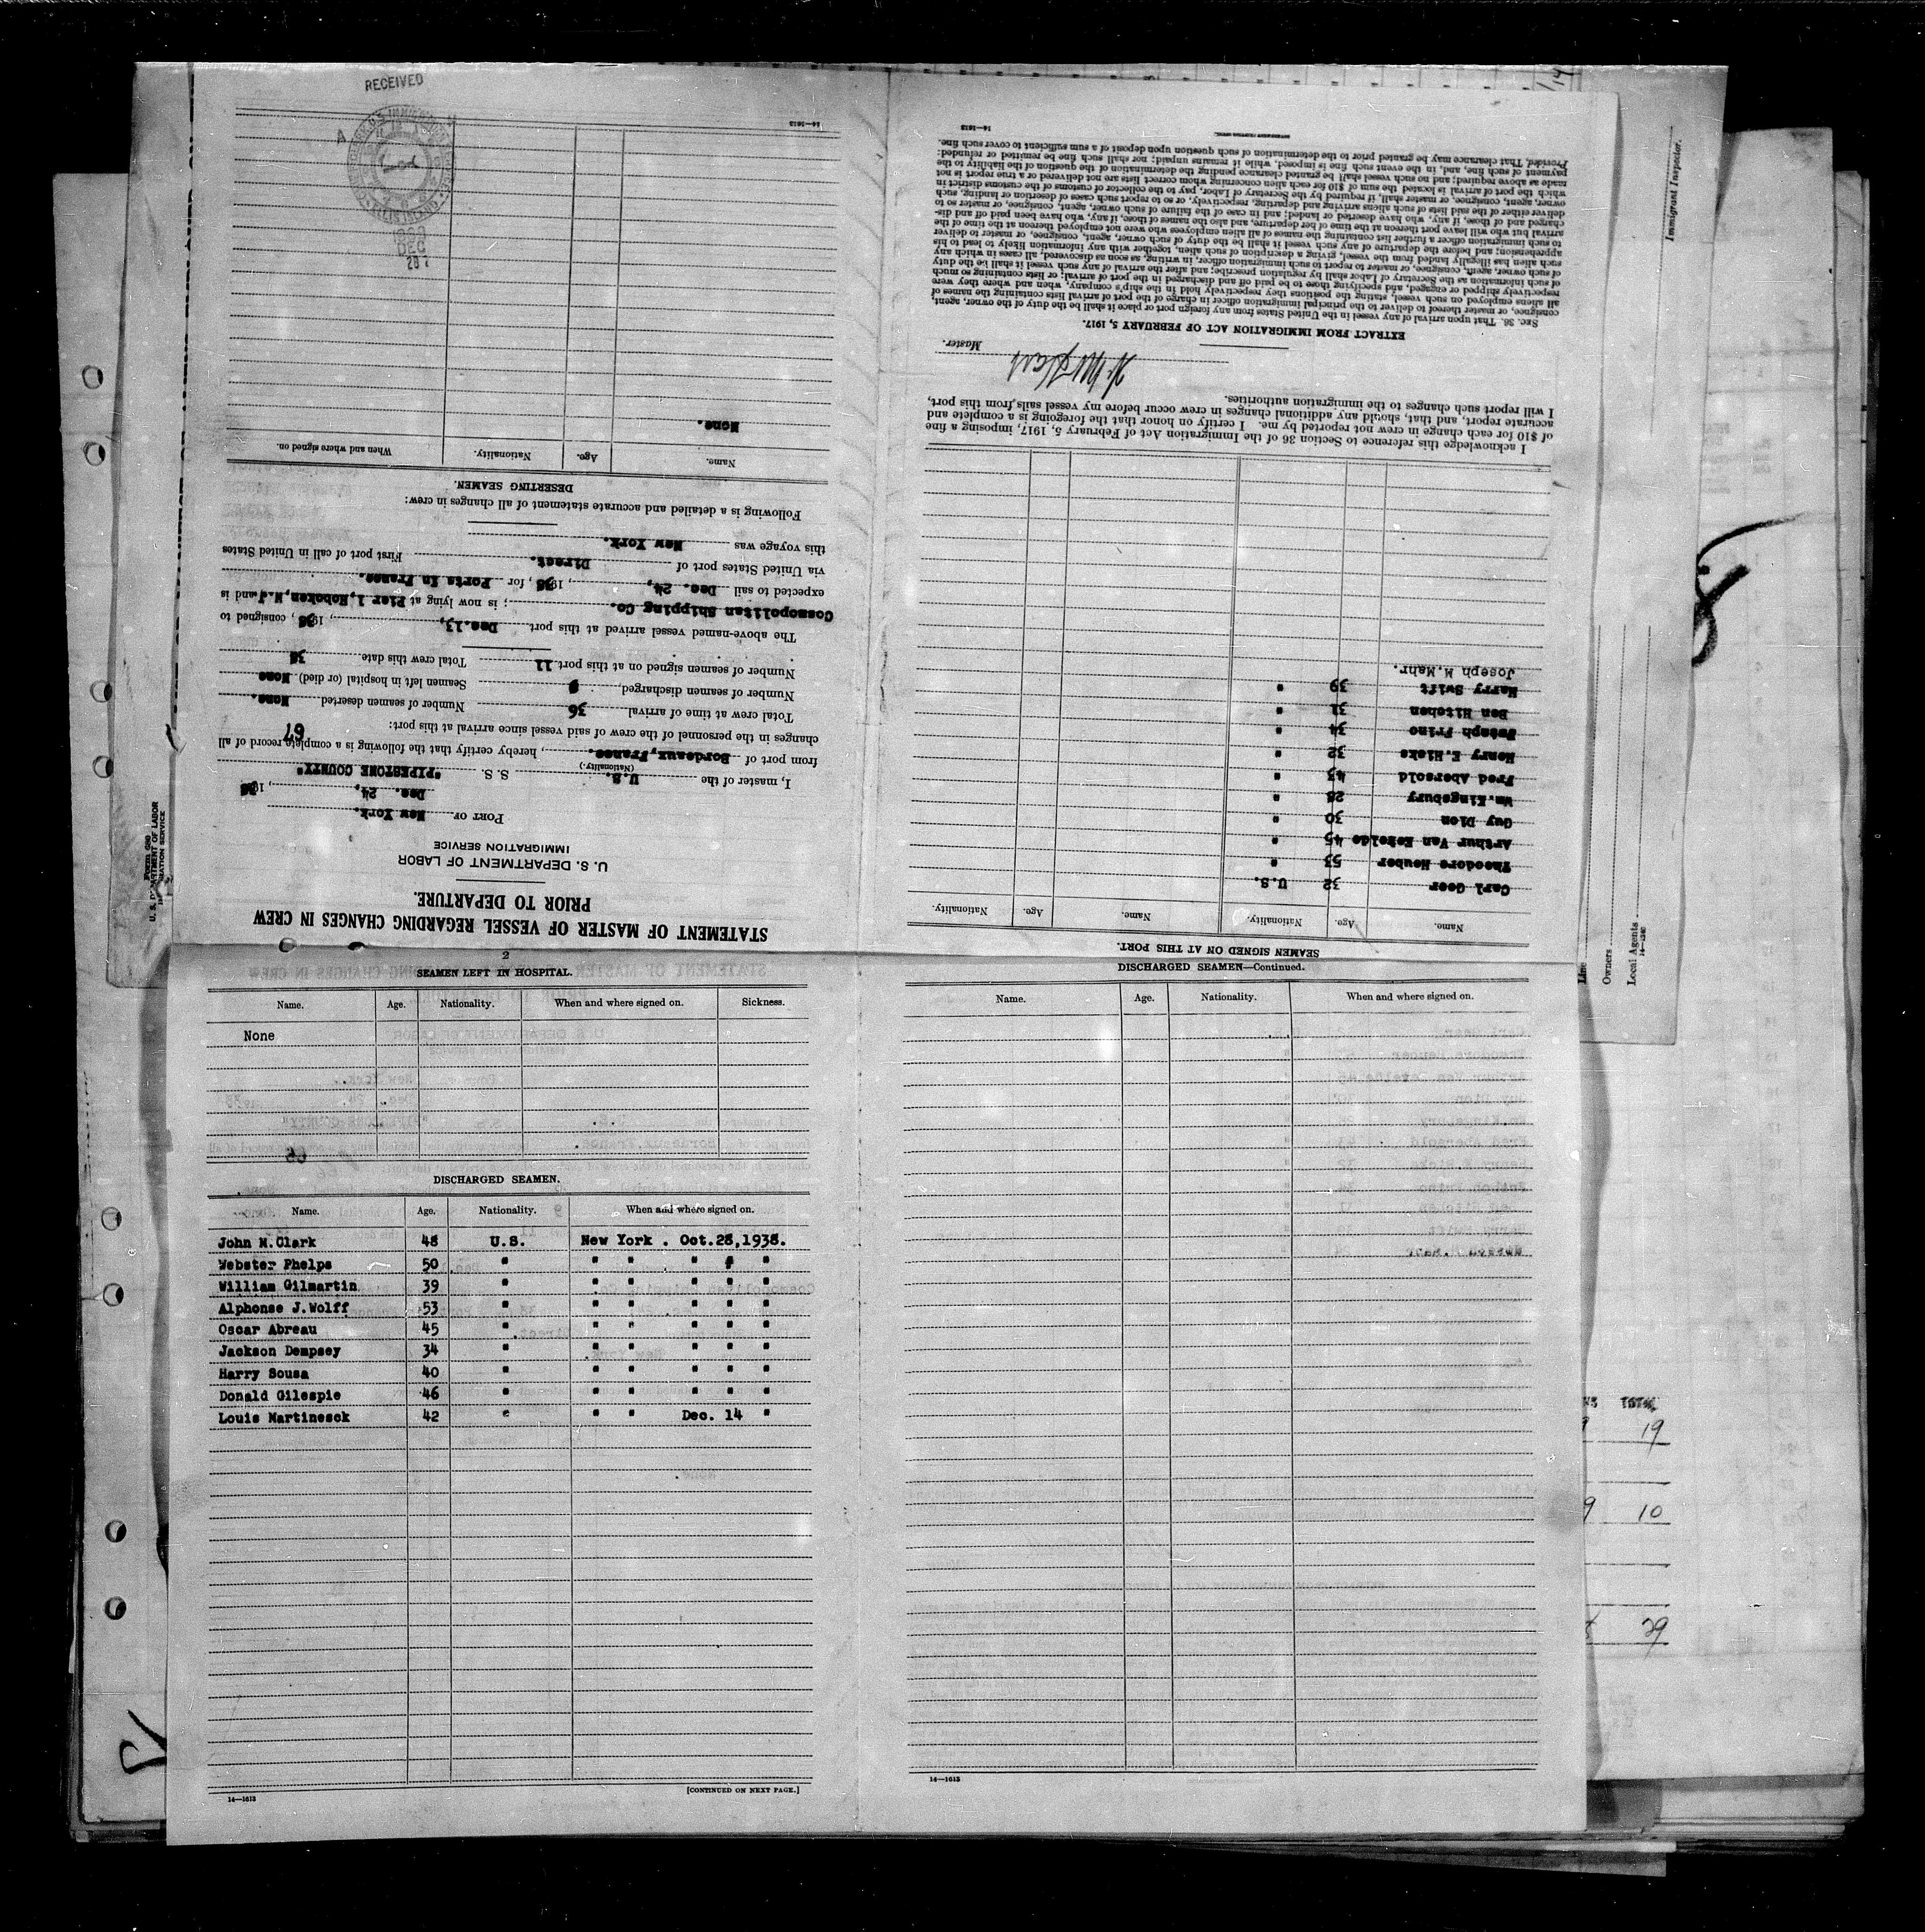 STATEMENT OF MASTER OF VESSEL REGARDING CHANGES IN CREW
PRIOR TO DEPARTURE.
U. S. DEPARTMENT OF LABOR
IMMIGRATION SERVICE
PORT OF New York.
Dec. 24, 1938
I, master of the U.S. S. S. "PIPESTONE COUNTY"
(Nationality.)
from port of Bordeaux, France., hereby certify that the following is a complete record of all
changes in the personnel of the crew of said vessel since arrival at this port: 67
Total crew at time of arrival 36 Number of seamen deserted None.
Number of seamen discharged, 9 Seamen left in hospital (or died). None
Number of seamen signed on at this port 11 Total crew this date 38
The above-named vessel arrived at this port Dec.13,, 1938, consigned to
Cosmopolitan Shipping Co.; is now lying at Pier 1, Hoboken, N.J. and is
expected to sail Dec. 24,, 1938, for Ports in France.
via United States port of Direct. First port of call in United States
this voyage was New York.
Following is a detailed and accurate statement of all changes in crew:
DESERTING SEAMEN.
Name. Age. Nationality. When and where signed on.
None.
RECEIVED
DEC
14—1613
2
SEAMEN LEFT IN HOSPITAL.
Name. Age. Nationality. When and where signed on. Sickness.
None
DISCHARGED SEAMEN.
Name. Age. Nationality. When and where signed on.
John M.Clark 48 U.S. New York . Oct.28,1938.
Webster Phelps 50 " " " " " "
William Gilmartin 39 " " " " " "
Alphonse J.Wolff 53 " " " " " "
Oscar Abreau 45 " " " " " "
Jackson Dempsey 34 " " " " " "
Harry Sousa 40 " " " " " "
Donald Gilespie 46 " " " " " "
Louis Martinesck 42 " " " Dec. 14 "
[CONTINUED ON NEXT PAGE.]
14—1613
DISCHARGED SEAMEN—Continued.
Name. Age. Nationality. When and where signed on.
14—1613
SEAMEN SIGNED ON AT THIS PORT.
Name. Age. Nationality. Name. Age. Nationality.
Carl Geer 32 U.S.
Theodore Heuber 53 "
Arthur Van Eekelde 45 "
Guy Dion 30 "
Wm.Kingsbury 28 "
Fred Abersold 43 "
Henry E.Hicks 32 "
Prino 34 "
Ben Hitchen 31 "
Harry Swift 39 "
Joseph W.Mahr.
I acknowledge this reference to Section 36 of the Immigration Act of February 5, 1917, imposing a fine
of $10 for each change in crew not reported by me. I certify on honor that the foregoing is a complete and
accurate report, and that, should any additional changes in crew occur before my vessel sails from this port,
I will report such changes to the immigration authorities.
Master.
EXTRACT FROM IMMIGRATION ACT OF FEBRUARY 5, 1917.
SEC. 36. That upon arrival of any vessel in the United States from any foreign port or place it shall be the duty of the owner, agent,
consignee, or master thereof to deliver to the principal immigration officer in charge of the port of arrival lists containing the names of
all aliens employed on such vessel, stating the positions they respectively hold in the ship's company, when and where they were
respectively shipped or engaged, and specifying those to be paid off and discharged in the port of arrival; or lists containing so much
of such information as the Secretary of Labor shall by regulation prescribe; and after the arrival of any such vessel it shall be the duty
of such owner, agent, consignee, or master to report to such immigration officer, in writing, as soon as discovered, all cases in which any
such alien has illegally landed from the vessel, giving a description of such alien, together with any information likely to lead to his
apprehension; and before the departure of any such vessel it shall be the duty of such owner, agent, consignee, or master to deliver
to such immigration officer a further list containing the names of all alien employees who were not employed thereon at the time of the
arrival but who will leave port thereon at the time of her departure, and also the names of those, if any, who have been paid off and dis-
charged and of those, if any, who have deserted or landed; and in case of the failure of such owner, agent, consignee, or master so to
deliver either of the said lists of such aliens arriving and departing, respectively, or so to report such cases of desertion or landing, such
owner, agent, consignee, or master shall, if required by the Secretary of Labor, pay to the collector of customs of the customs district in
which the port of arrival is located the sum of $10 for each alien concerning whom correct lists are not delivered or a true report is not
made as above required; and no such vessel shall be granted clearance pending the determination of the question of the liability to the
payment of such fine, and, in the event such fine is imposed, while it remains unpaid; nor shall such fine be remitted or refunded:
Provided, That clearance may be granted prior to the determination of such question upon deposit of a sum sufficient to cover such fine.
14—1613
Immigrant Inspector.
Line
Owners
Local Agents
14—1240
Form 689
U. S. DEPARTMENT OF LABOR
IMMIGRATION SERVICE
TOTAL
19
10
29